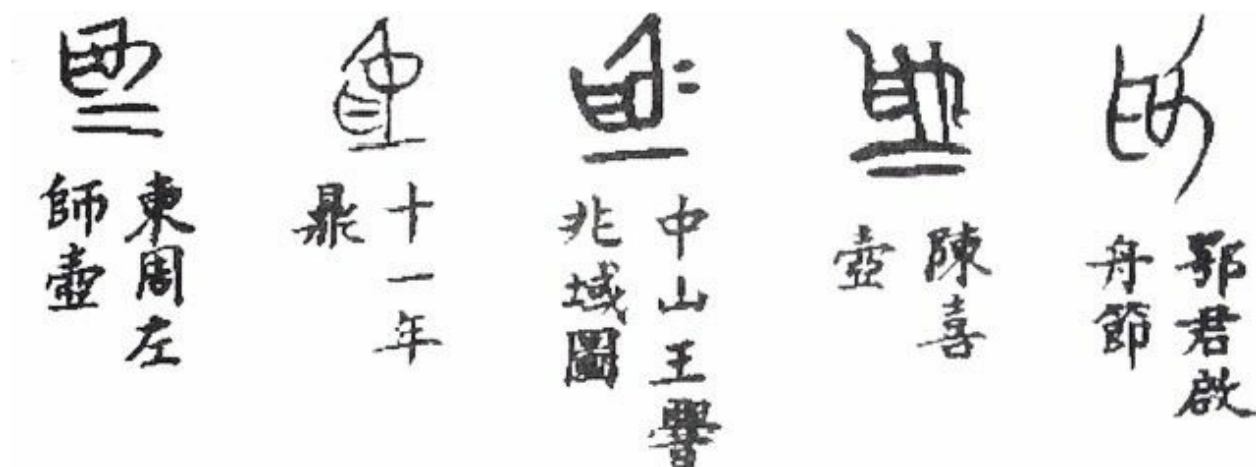 鄂君啟
舟節
陳喜
壺
中山王
兆域圖
十一年
鼎
東周左
師壺